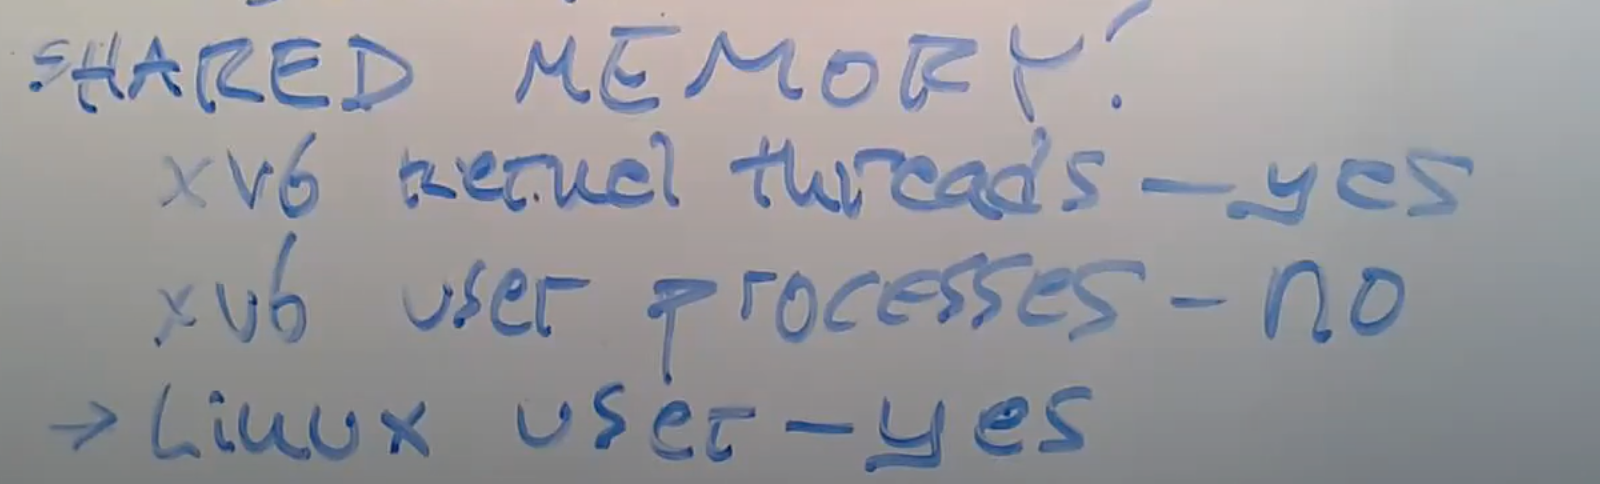 SHARED MEMORY?
xv6 kernel threads — yes
xv6 user processes - no
→ Linux user — yes